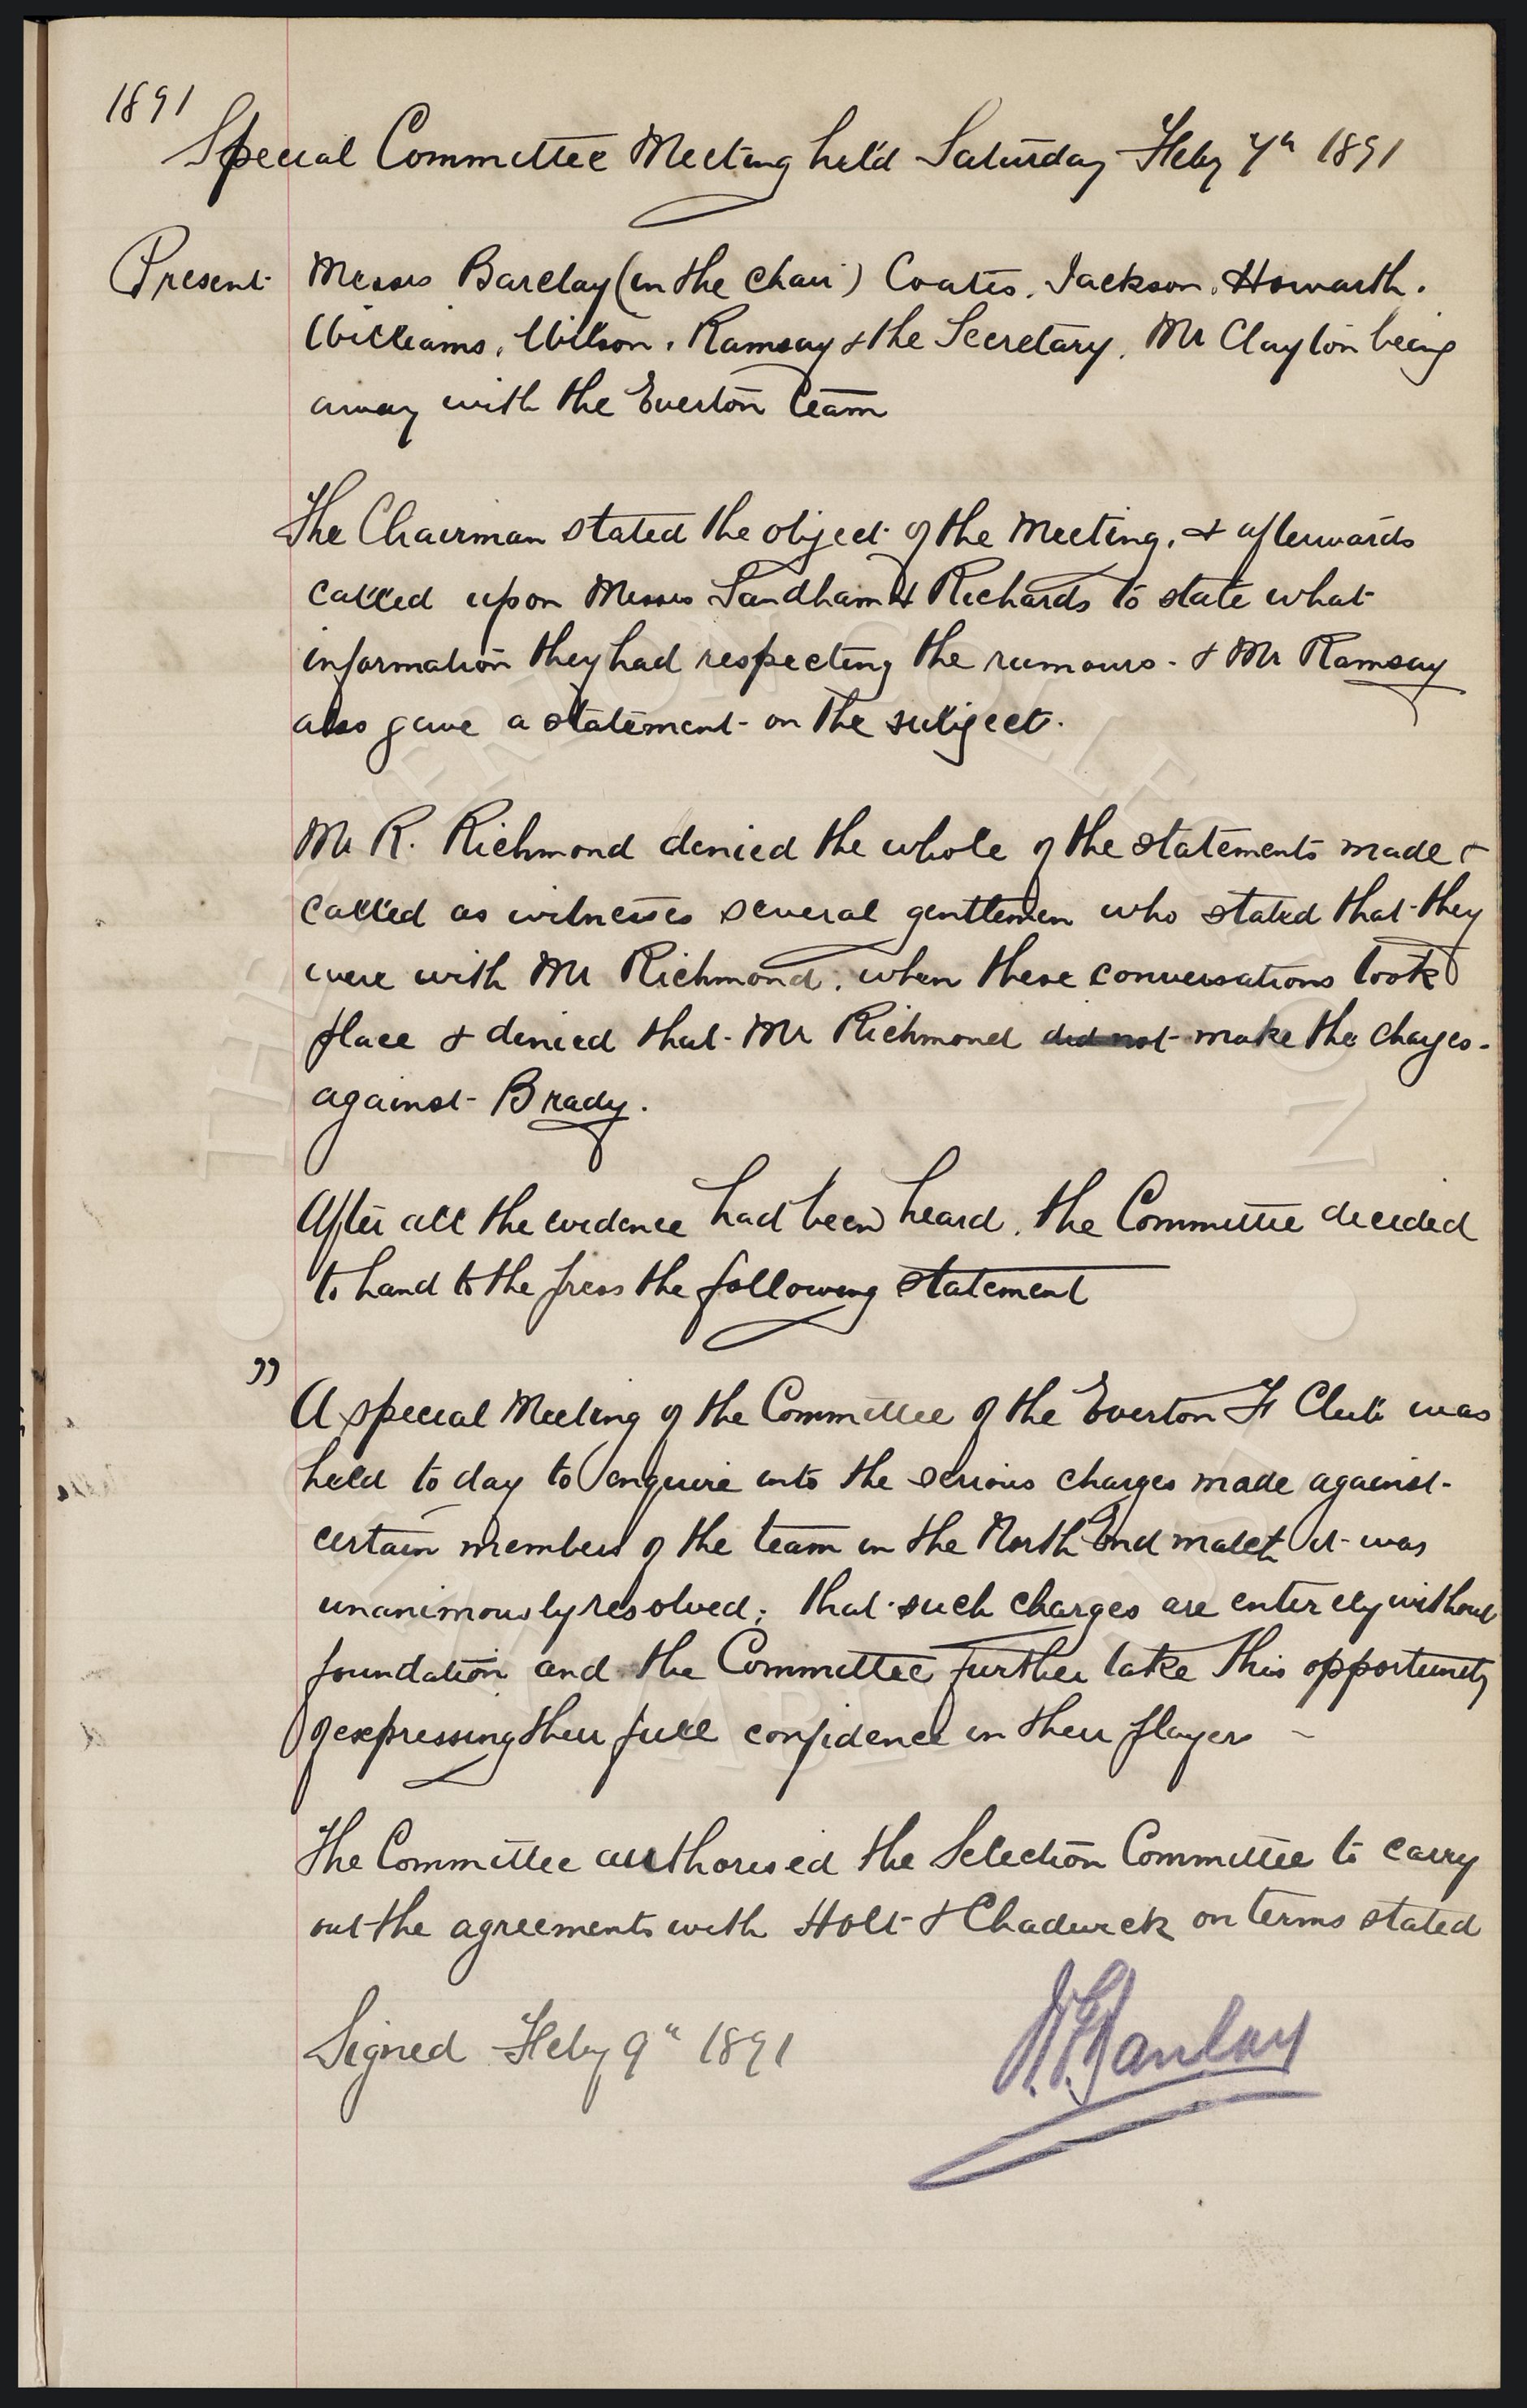 1891
Special Committee Meeting held Saturday Feby 7th 1891
Present Messrs Barclay (in the chair) Coates, Jackson, Howarth.
Williams, Wilson, Ramsay & the Secretary, Mr Clayton being
away with the Everton team
The Chairman stated the object of the Meeting, & afterwards
called upon Messrs Sandham & Richards to state what
information they had respecting the rumours - & Mr Ramsay
also gave a statement on the subject.
Mr R. Richmond denied the whole of the statements made &
called as witnesses several gentlemen who stated that they
were with Mr Richmond, when these conversations took
place & denied that Mr Richmond did not make the charges
against Brady.
After all the evidence had been heard, the Committee decided
to hand to the press the following statement
" A special Meeting of the Committee of the Everton F Club was
held to day to enquire into the serious charges made against
certain members of the team in the North End match it was
unanimously resolved; that such charges are entirely without
foundation and the Committee further take this opportunity
of expressing their full confidence in their players -
The Committee authorised the Selection Committee to carry
out the agreements with Holt & Chadwick on terms stated
Signed Feby 9th 1891
THE EVERTON COLLECTION